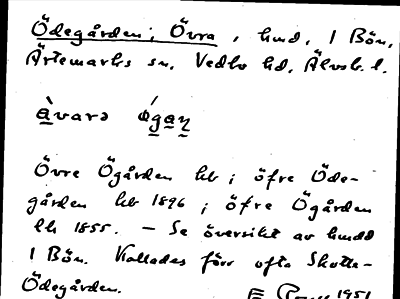 Ödegården, Övra, hmd, I Bön,
Ärtemarks sn, Vedbo hd, Älvsb. l.
àvarə ǿgaṇ
Övre Ögården hb; öfre Öde-
gården hb 1896; öfre Ögården
hh 1855. – Se översikt av hmdd
I Bön. Kallades förr ofta Skotte-
Ödegården. 1951